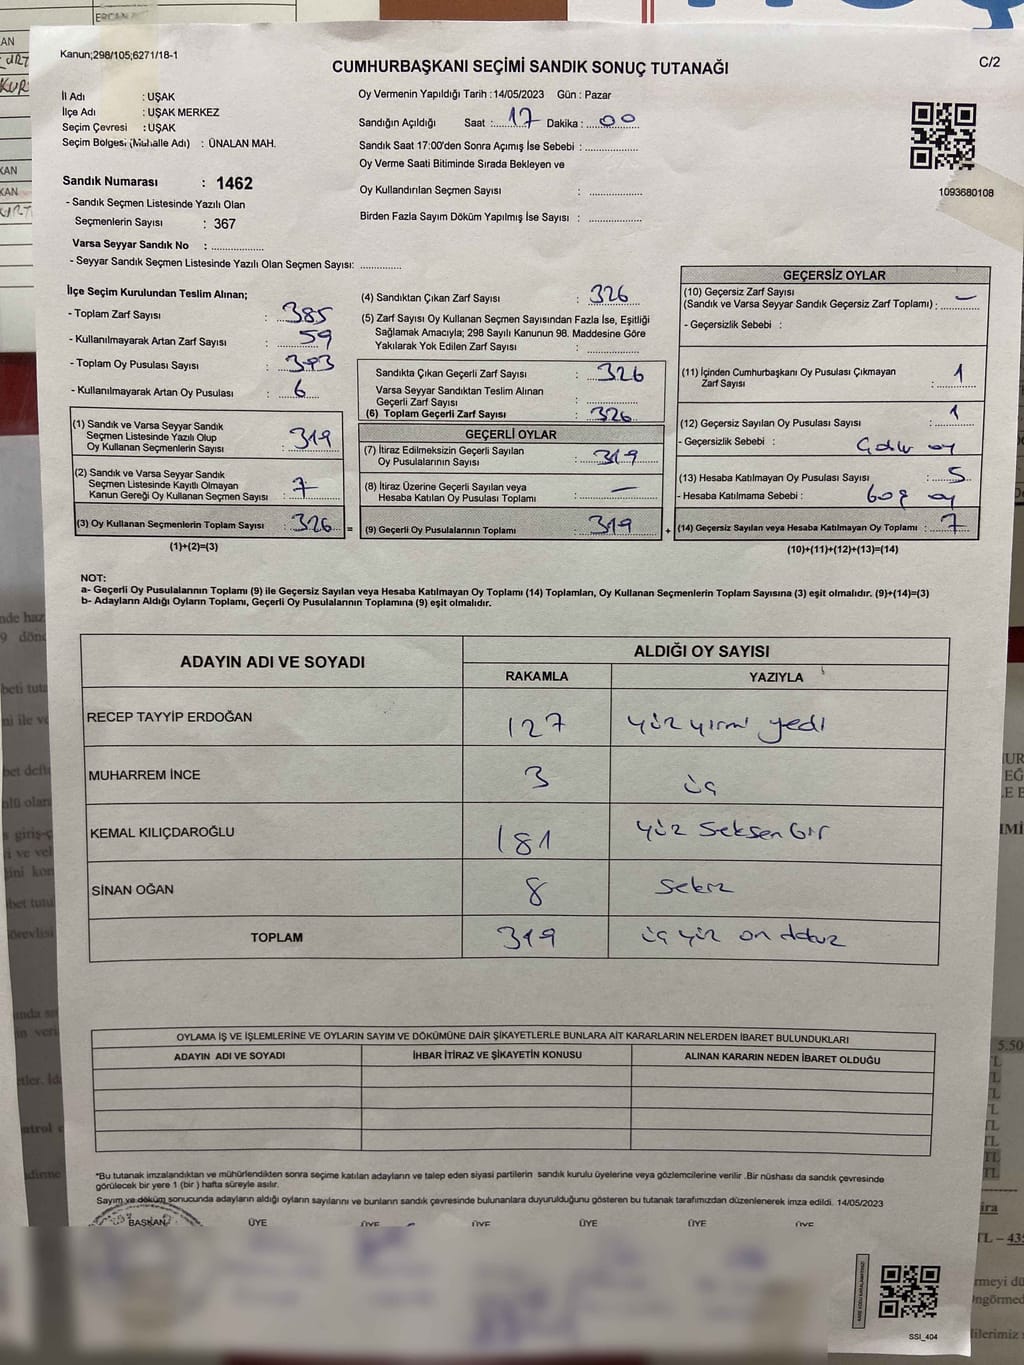 Kanun;298/105;6271/18-1
C/2
CUMHURBAŞKANI SEÇİMİ SANDIK SONUÇ TUTANAĞI
İl Adı : UŞAK
İlçe Adı : UŞAK MERKEZ
Seçim Çevresi : UŞAK
Seçim Bölgesi (Mahalle Adı) : ÜNALAN MAH.
Oy Vermenin Yapıldığı Tarih : 14/05/2023 Gün : Pazar
Sandığın Açıldığı Saat : 17 Dakika : 00
Sandık Saat 17:00'den Sonra Açımış İse Sebebi :
Oy Verme Saati Bitiminde Sırada Bekleyen ve
Oy Kullandırılan Seçmen Sayısı :
Birden Fazla Sayım Döküm Yapılmış İse Sayısı :
1093680108
Sandık Numarası : 1462
- Sandık Seçmen Listesinde Yazılı Olan
Seçmenlerin Sayısı : 367
Varsa Seyyar Sandık No :
- Seyyar Sandık Seçmen Listesinde Yazılı Olan Seçmen Sayısı:
İlçe Seçim Kurulundan Teslim Alınan;
- Toplam Zarf Sayısı : 385
- Kullanılmayarak Artan Zarf Sayısı : 59
- Toplam Oy Pusulası Sayısı :
- Kullanılmayarak Artan Oy Pusulası : 6
(1) Sandık ve Varsa Seyyar Sandık
Seçmen Listesinde Yazılı Olup
Oy Kullanan Seçmenlerin Sayısı : 319
(2) Sandık ve Varsa Seyyar Sandık
Seçmen Listesinde Kayıtlı Olmayan
Kanun Gereği Oy Kullanan Seçmen Sayısı : 7
(3) Oy Kullanan Seçmenlerin Toplam Sayısı : 326 =
(1)+(2)=(3)
(4) Sandıktan Çıkan Zarf Sayısı : 326
(5) Zarf Sayısı Oy Kullanan Seçmen Sayısından Fazla İse, Eşitliği
Sağlamak Amacıyla; 298 Sayılı Kanunun 98. Maddesine Göre
Yakılarak Yok Edilen Zarf Sayısı :
Sandıkta Çıkan Geçerli Zarf Sayısı : 326
Varsa Seyyar Sandıktan Teslim Alınan
Geçerli Zarf Sayısı :
(6) Toplam Geçerli Zarf Sayısı : 326
GEÇERLİ OYLAR
(7) İtiraz Edilmeksizin Geçerli Sayılan
Oy Pusulalarının Sayısı : 319
(8) İtiraz Üzerine Geçerli Sayılan veya
Hesaba Katılan Oy Pusulası Toplamı : —
(9) Geçerli Oy Pusulalarının Toplamı : 319 +
GEÇERSİZ OYLAR
(10) Geçersiz Zarf Sayısı
(Sandık ve Varsa Seyyar Sandık Geçersiz Zarf Toplamı) : —
- Geçersizlik Sebebi :
(11) İçinden Cumhurbaşkanı Oy Pusulası Çıkmayan
Zarf Sayısı : 1
(12) Geçersiz Sayılan Oy Pusulası Sayısı : 1
- Geçersizlik Sebebi : oy
(13) Hesaba Katılmayan Oy Pusulası Sayısı : 5
- Hesaba Katılmama Sebebi : boş oy
(14) Geçersiz Sayılan veya Hesaba Katılmayan Oy Toplamı : 7
(10)+(11)+(12)+(13)=(14)
NOT:
a- Geçerli Oy Pusulalarının Toplamı (9) ile Geçersiz Sayılan veya Hesaba Katılmayan Oy Toplamı (14) Toplamları, Oy Kullanan Seçmenlerin Toplam Sayısına (3) eşit olmalıdır. (9)+(14)=(3)
b- Adayların Aldığı Oyların Toplamı, Geçerli Oy Pusulalarının Toplamına (9) eşit olmalıdır.
ADAYIN ADI VE SOYADI
ALDIĞI OY SAYISI
RAKAMLA YAZIYLA
RECEP TAYYİP ERDOĞAN 127 yüz yirmi yedi
MUHARREM İNCE 3 üç
KEMAL KILIÇDAROĞLU 181 yüz seksen bir
SİNAN OĞAN 8 sekiz
TOPLAM 319 üç yüz on dokuz
OYLAMA İŞ VE İŞLEMLERİNE VE OYLARIN SAYIM VE DÖKÜMÜNE DAİR ŞİKAYETLERLE BUNLARA AİT KARARLARIN NELERDEN İBARET BULUNDUKLARI
ADAYIN ADI VE SOYADI İHBAR İTİRAZ VE ŞİKAYETİN KONUSU ALINAN KARARIN NEDEN İBARET OLDUĞU
*Bu tutanak imzalandıktan ve mühürlendikten sonra seçime katılan adayların ve talep eden siyasi partilerin sandık kurulu üyelerine veya gözlemcilerine verilir .Bir nüshası da sandık çevresinde
görülecek bir yere 1 (bir ) hafta süreyle asılır.
Sayım ve döküm sonucunda adayların aldığı oyların sayılarını ve bunların sandık çevresinde bulunanlara duyurulduğunu gösteren bu tutanak tarafımızdan düzenlenerek imza edildi. 14/05/2023
BAŞKAN ÜYE ÜYE ÜYE ÜYE ÜYE ÜYE
SSI_404